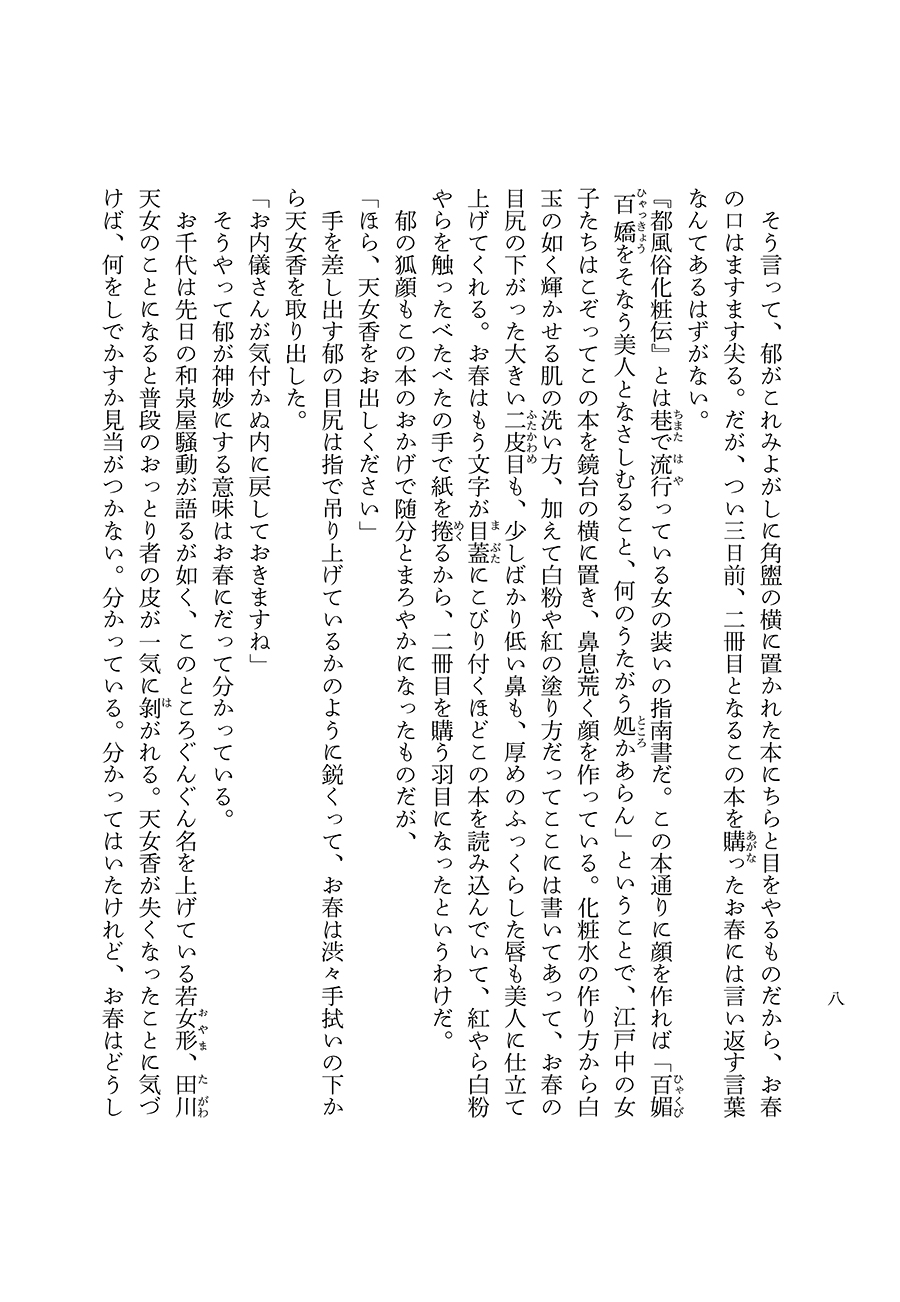 そう言って、郁がこれみよがしに角盥の横に置かれた本にちらと目をやるものだから、お春
の口はますます尖る。だが、つい三日前、二冊目となるこの本を購ったお春には言い返す言葉
なんてあるはずがない。
『都風俗化粧伝』とは巷で流行っている女の装いの指南書だ。この本通りに顔を作れば「百媚
百嬌をそなう美人となさしむること、何のうたがう処かあらん」ということで、江戸中の女
子たちはこぞってこの本を鏡台の横に置き、鼻息荒く顔を作っている。化粧水の作り方から白
玉の如く輝かせる肌の洗い方、加えて白粉や紅の塗り方だってここには書いてあって、お春の
目尻の下がった大きい二皮目も、少しばかり低い鼻も、厚めのふっくらした唇も美人に仕立て
上げてくれる。お春はもう文字が目蓋にこびり付くほどこの本を読み込んでいて、紅やら白粉
やらを触ったべたべたの手で紙を捲るから、二冊目を購う羽目になったというわけだ。
郁の狐顔もこの本のおかげで随分とまろやかになったものだが、
「ほら、天女香をお出しください」
手を差し出す郁の目尻は指で吊り上げているかのように鋭くって、お春は渋々手拭いの下か
ら天女香を取り出した。
「お内儀さんが気付かぬ内に戻しておきますね」
そうやって郁が神妙にする意味はお春にだって分かっている。
お千代は先日の和泉屋騒動が語るが如く、このところぐんぐん名を上げている若女形、田川
天女のことになると普段のおっとり者の皮が一気に剝がれる。天女香が失くなったことに気づ
けば、何をしでかすか見当がつかない。分かっている。分かってはいたけれど、お春はどうし
八